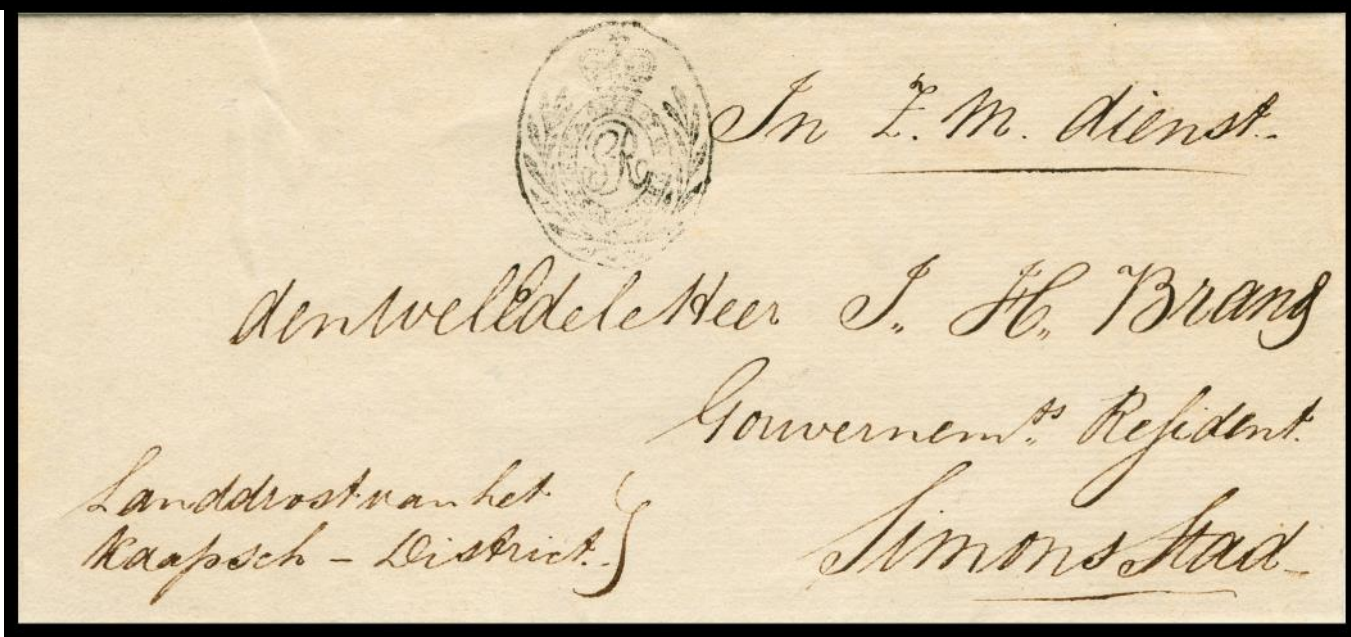 In Z. M. dienst.
den WelEdele Heer J. H. Brand
Gouvernem.ts Resident.
Simons Stad
Landdrost van het
Kaapsch - District.
GR